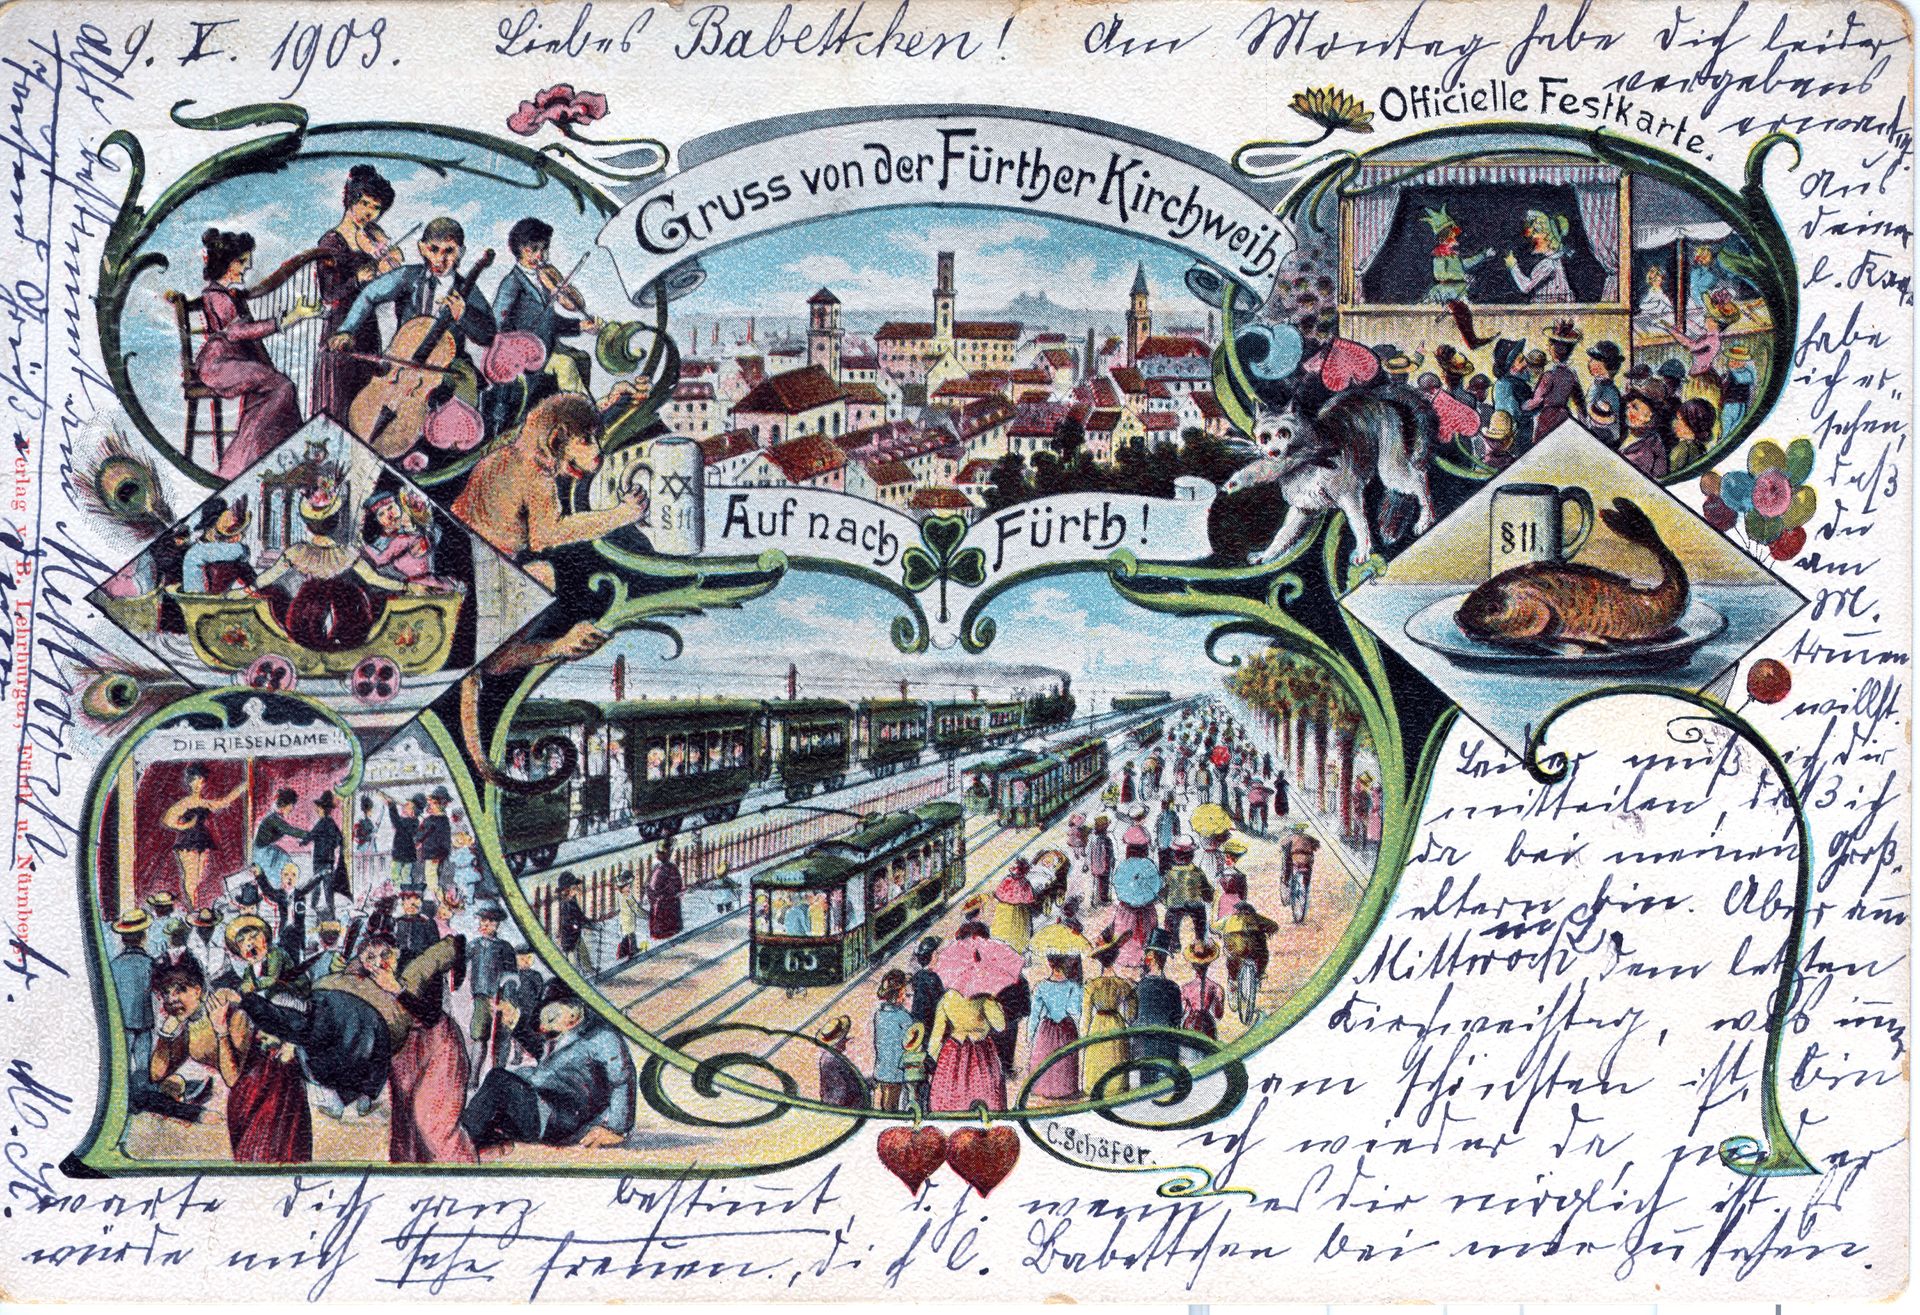 9. X. 1903. Liebes Babettchen! Am Montag habe dich leider
vergebens
erwartet.
Aus
deiner
l. Karte
habe
ich er-
sehen,
daß
du
am
M.
kommen
willst.
Leider muß ich dir
mitteilen, daß ich
da bei meinen Groß-
eltern bin. Aber am
Mittwoch, dem letzten
Kirchweihtag, was immer
am schönsten ist, bin
ich wieder da, und er
warte dich ganz bestimmt, d. h. wenn es dir möglich ist. Es
würde mich sehr freuen, dich l. Babettchen bei mir zu sehen.
Also bestimmt am Mittwoch
Tausend Grüße
Officielle Festkarte.
Gruss von der Fürther Kirchweih.
§ 11
Auf nach Fürth!
§ 11.
DIE RIESENDAME!!
63
C. Schäfer.
Verlag v. B. Lehrburger, Fürth u. Nürnberg.